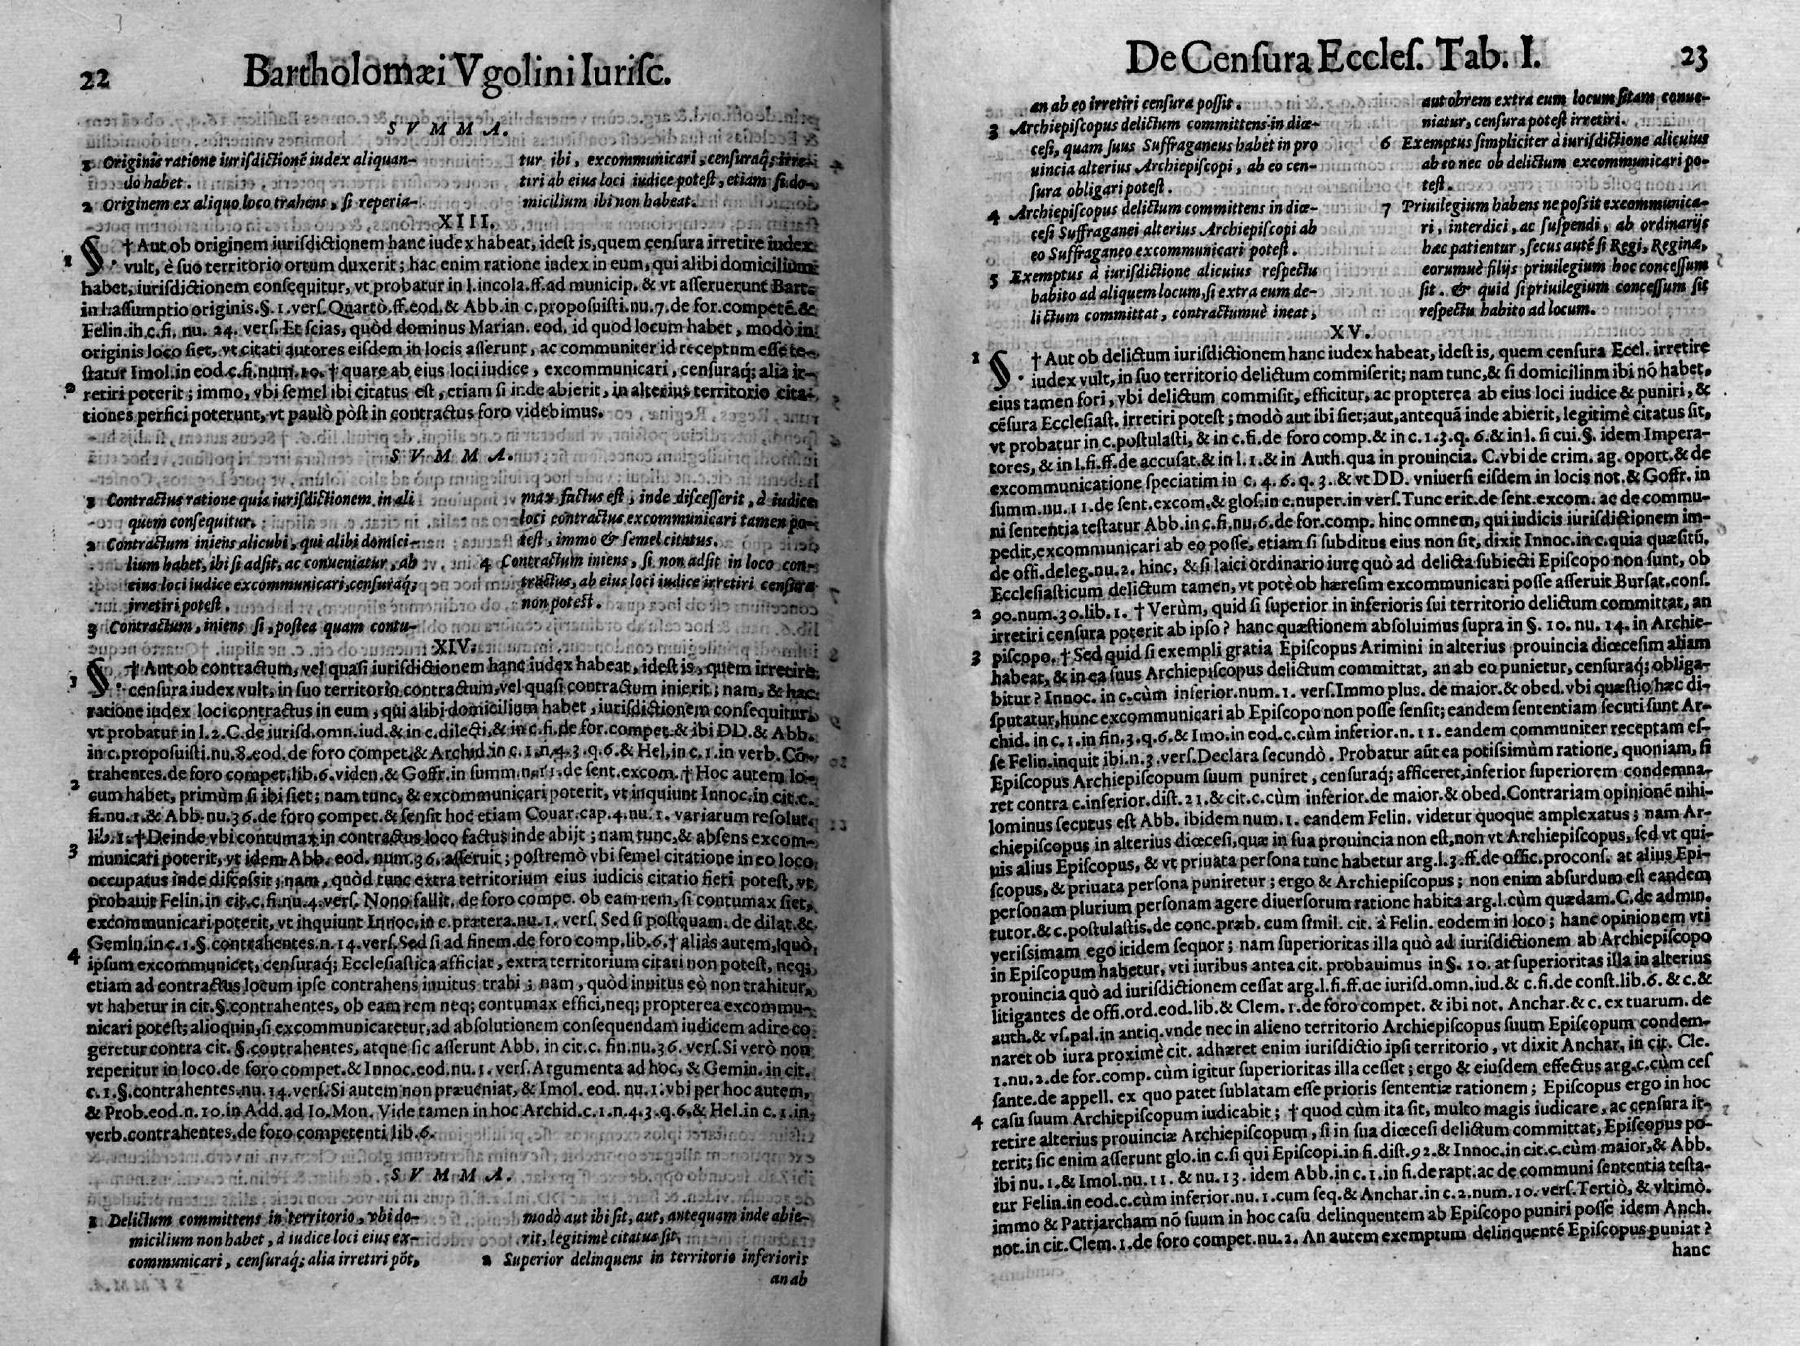 22 Bartholomæi Vgolini Iurisc.
S V M M A.
1 Originis ratione iurisdictionē iudex aliquan-
do habet.
2 Originem ex aliquo loco trahens, si reperia-
tur ibi, excommunicari, censuraq́; irre-
tiri ab eius loci iudice potest, etiam si do-
micilium ibi non habeat.
XIII.
1 §. † Aut ob originem iurisdictionem hanc iudex habeat, idest is, quem censura irretire iudex
vult, è suo territorio ortum duxerit; hac enim ratione iudex in eum, qui alibi domicilium
habet, iurisdictionem consequitur, vt probatur in l. incola. ff. ad municip. & vt asseruerunt Bart.
in hassumptio originis. §. 1. vers. Quartò. ff. eod. & Abb. in c. proposuisti. nu. 7. de for. competē. &
Felin. ih. c. fi. nu. 24. vers. Et scias, quòd dominus Marian. eod. id quod locum habet, modò in
originis loco siet, vt citati autores eisdem in locis asserunt, ac communiter id receptum esse te-
statur Imol. in eod. c. fi. num. 10. † quare ab eius loci iudice, excommunicari, censuraq́; alia ir-
2 retiri poterit; immo, vbi semel ibi citatus est, etiam si inde abierit, in alterius territorio cita-
tiones perfici poterunt, vt paulò pòst in contractus foro videbimus.
S V M M A.
1 Contractus ratione quis iurisdictionem in ali
quem consequitur.
2 Contractum iniens alicubi, qui alibi domici-
lium habet, ibi si adsit, ac conueniatur, ab
eius loci iudice excommunicari, censuraq́;
irretiri potest.
3 Contractum, iniens si, postea quam contu-
max factus est, inde discesserit, à iudice
loci contractus excommunicari tamen po-
test, immo & semel citatus.
4 Contractum iniens, si non adsit in loco con-
tractus, ab eius loci iudice irretiri censura
non potest.
XIV.
1 §. † Aut ob contractum, vel quasi iurisdictionem hanc iudex habeat, idest is, quem irretire
censura iudex vult, in suo territorio contractum, vel quasi contractum inierit; nam, & hac
ratione iudex loci contractus in eum, qui alibi domicilium habet, iurisdictionem consequitur,
vt probatur in l. 2. C. de iurisd. omn. iud. & in c. dilecti. & in c. fi. de for. compet. & ibi DD. & Abb.
in c. proposuisti. nu. 8. eod. de foro compet. & Archid. in c. 1. n. 4. 3. q. 6. & Hel. in c. 1. in verb. Cō-
trahentes. de foro compet. lib. 6. viden. & Goffr. in summ. n. 11. de sent. excom. † Hoc autem lo-
2 cum habet, primùm si ibi siet; nam tunc, & excommunicari poterit, vt inquiunt Innoc. in cit. c.
fi. nu. 1. & Abb. nu. 36. de foro compet. & sensit hoc etiam Couar. cap. 4. nu. 1. variarum resolut.
lib. 1. † Deinde vbi contumax in contractus loco factus inde abijt; nam tunc, & absens excom-
3 municari poterit, vt idem Abb. eod. num. 36. asseruit; postremò vbi semel citatione in eo loco
occupatus inde discessit; nam, quòd tunc extra territorium eius iudicis citatio fieri potest, vt
probauit Felin. in cit. c. fi. nu. 4. vers. Nono fallit. de foro compe. ob eam rem, si contumax siet,
excommunicari poterit, vt inquiunt Innoc. in c. prætera. nu. 1. vers. Sed si postquam. de dilat. &
Gemin. in c. 1. §. contrahentes. n. 14. vers. Sed si ad finem. de foro comp. lib. 6. † aliàs autem, quò
4 ipsum excommunicet, censuraq́; Ecclesiastica afficiat, extra territorium citari non potest, neq;
etiam ad contractus locum ipse contrahens inuitus trahi; nam, quòd inuitus eò non trahitur,
vt habetur in cit. §. contrahentes, ob eam rem neq; contumax effici, neq; propterea excommu-
nicari potest; alioquin, si excommunicaretur, ad absolutionem consequendam iudicem adire co
geretur contra cit. §. contrahentes, atque sic asserunt Abb. in cit. c. fin. nu. 36. vers. Si verò non
reperitur in loco. de foro compet. & Innoc. eod. nu. 1. vers. Argumenta ad hoc, & Gemin. in cit.
c. 1. §. contrahentes. nu. 14. vers. Si autem non præueniat, & Imol. eod. nu. 1. vbi per hoc autem,
& Prob. eod. n. 10. in Add. ad Io. Mon. Vide tamen in hoc Archid. c. 1. n. 4. 3. q. 6. & Hel. in c. 1. in
verb. contrahentes. de foro competenti lib. 6.
S V M M A.
1 Delictum committens in territorio, vbi do-
micilium non habet, à iudice loci eius ex-
communicari, censuraq́; alia irretiri pōt,
modò aut ibi sit, aut, antequam inde abie-
rit, legitimè citatus sit.
2 Superior delinquens in territorio inferioris
an ab
De Censura Eccles. Tab. I. 23
an ab eo irretiri censura possit.
3 Archiepiscopus delictum committens in diœ-
cesi, quam suus Suffraganeus habet in pro
uincia alterius Archiepiscopi, ab eo cen-
sura obligari potest.
4 Archiepiscopus delictum committens in diœ-
cesi Suffraganei alterius Archiepiscopi ab
eo Suffraganeo excommunicari potest.
5 Exemptus à iurisdictione alicuius respectu
habito ad aliquem locum, si extra eum de-
lictum committat, contractumuè ineat,
aut obrem extra eum locum sitam conue-
niatur, censura potest irretiri.
6 Exemptus simpliciter à iurisdictione alicuius
ab eo nec ob delictum excommunicari po-
test.
7 Priuilegium habens ne possit excommunica-
ri, interdici, ac suspendi, ab ordinarijs
hæc patientur, secus autē si Regi, Reginæ,
eorumuè filijs priuilegium hoc concessum
sit. & quid si priuilegium concessum sit
respectu habito ad locum.
XV.
1 §. † Aut ob delictum iurisdictionem hanc iudex habeat, idest is, quem censura Eccl. irretire
iudex vult, in suo territorio delictum commiserit; nam tunc, & si domicilinm ibi nō habet,
eius tamen fori, vbi delictum commisit, efficitur, ac propterea ab eius loci iudice & puniri, &
cēsura Ecclesiast. irretiri potest; modò aut ibi siet; aut, antequā inde abierit, legitimè citatus sit,
vt probatur in c. postulasti, & in c. fi. de foro comp. & in c. 1. 3. q. 6. & in l. si cui. §. idem Impera-
tores, & in l. fi. ff. de accusat. & in l. 1. & in Auth. qua in prouincia. C. vbi de crim. ag. oport. & de
excommunicatione speciatim in c. 4. 6. q. 3. & vt DD. vniuersi eisdem in locis not. & Goffr. in
summ. nu. 11. de sent. excom. & glos. in c. nuper. in vers. Tunc erit. de sent. excom. ac de commu-
ni sententia testatur Abb. in c. fi. nu. 6. de for. comp. hinc omnem, qui iudicis iurisdictionem im-
pedit, excommunicari ab eo posse, etiam si subditus eius non sit, dixit Innoc. in c. quia quæsitū,
de offi. deleg. nu. 2. hinc, & si laici ordinario iure quò ad delicta subiecti Episcopo non sunt, ob
Ecclesiasticum delictum tamen, vt potè ob hæresim excommunicari posse asseruit Bursat. cons.
2 90. num. 30. lib. 1. † Verùm, quid si superior in inferioris sui territorio delictum committat, an
irretiri censura poterit ab ipso? hanc quæstionem absoluimus supra in §. 10. nu. 14. in Archie-
3 piscopo. † Sed quid si exempli gratia Episcopus Arimini in alterius prouincia diœcesim aliam
habeat, & in ea suus Archiepiscopus delictum committat, an ab eo punietur, censuraq́; obliga-
bitur? Innoc. in c. cùm inferior. num. 1. vers. Immo plus. de maior. & obed. vbi quæstio hæc di-
sputatur, hunc excommunicari ab Episcopo non posse sensit; eandem sententiam secuti sunt Ar-
chid. in c. 1. in fin. 3. q. 6. & Imo. in eod. c. cùm inferior. n. 11. eandem communiter receptam es-
se Felin. inquit ibi. n. 3. vers. Declara secundò. Probatur aūt ea potissimùm ratione, quoniam, si
Episcopus Archiepiscopum suum puniret, censuraq́; afficeret, inferior superiorem condemna-
ret contra c. inferior. dist. 21. & cit. c. cùm inferior. de maior. & obed. Contrariam opinionē nihi-
lominus secutus est Abb. ibidem num. 1. eandem Felin. videtur quoque amplexatus; nam Ar-
chiepiscopus in alterius diœcesi, quæ in sua prouincia non est, non vt Archiepiscopus, sed vt qui-
uis alius Episcopus, & vt priuata persona tunc habetur arg. l. 3. ff. de offic. procons. at alius Epi-
scopus, & priuata persona puniretur; ergo & Archiepiscopus; non enim absurdum est eandem
personam plurium personam agere diuersorum ratione habita arg. l. cùm quædam. C. de admin.
tutor. & c. postulastis. de conc. præb. cum simil. cit. à Felin. eodem in loco; hanc opinionem vti
verissimam ego itidem sequor; nam superioritas illa quò ad iurisdictionem ab Archiepiscopo
in Episcopum habetur, vti iuribus antea cit. probauimus in §. 10. at superioritas illa in alterius
prouincia quò ad iurisdictionem cessat arg. l. fi. ff. de iurisd. omn. iud. & c. fi. de const. lib. 6. & c. &
litigantes de offi. ord. eod. lib. & Clem. 1. de foro compet. & ibi not. Anchar. & c. ex tuarum. de
auth. & vs. pal. in antiq. vnde nec in alieno territorio Archiepiscopus suum Episcopum condem-
naret ob iura proximè cit. adhæret enim iurisdictio ipsi territorio, vt dixit Anchar. in cit. Cle.
1. nu. 2. de for. comp. cùm igitur superioritas illa cesset; ergo & eiusdem effectus arg. c. cùm ces
sante. de appell. ex quo patet sublatam esse prioris sententiæ rationem; Episcopus ergo in hoc
4 casu suum Archiepiscopum iudicabit; † quod cùm ita sit, multo magis iudicare, ac censura ir-
retire alterius prouinciæ Archiepiscopum, si in sua diœcesi delictum committat, Episcopus po-
terit; sic enim asserunt glo. in c. si qui Episcopi. in fi. dist. 92. & Innoc. in cit. c. cùm maior, & Abb.
ibi nu. 1. & Imol. nu. 11. & nu. 13. idem Abb. in c. 1. in fi. de rapt. ac de communi sententia testa-
tur Felin. in eod. c. cùm inferior. nu. 1. cum seq. & Anchar. in c. 2. num. 10. vers. Tertiò, & vltimò.
immo & Patriarcham nō suum in hoc casu delinquentem ab Episcopo puniri posse idem Anch.
not. in cit. Clem. 1. de foro compet. nu. 2. An autem exemptum delinquentē Episcopus puniat?
hanc